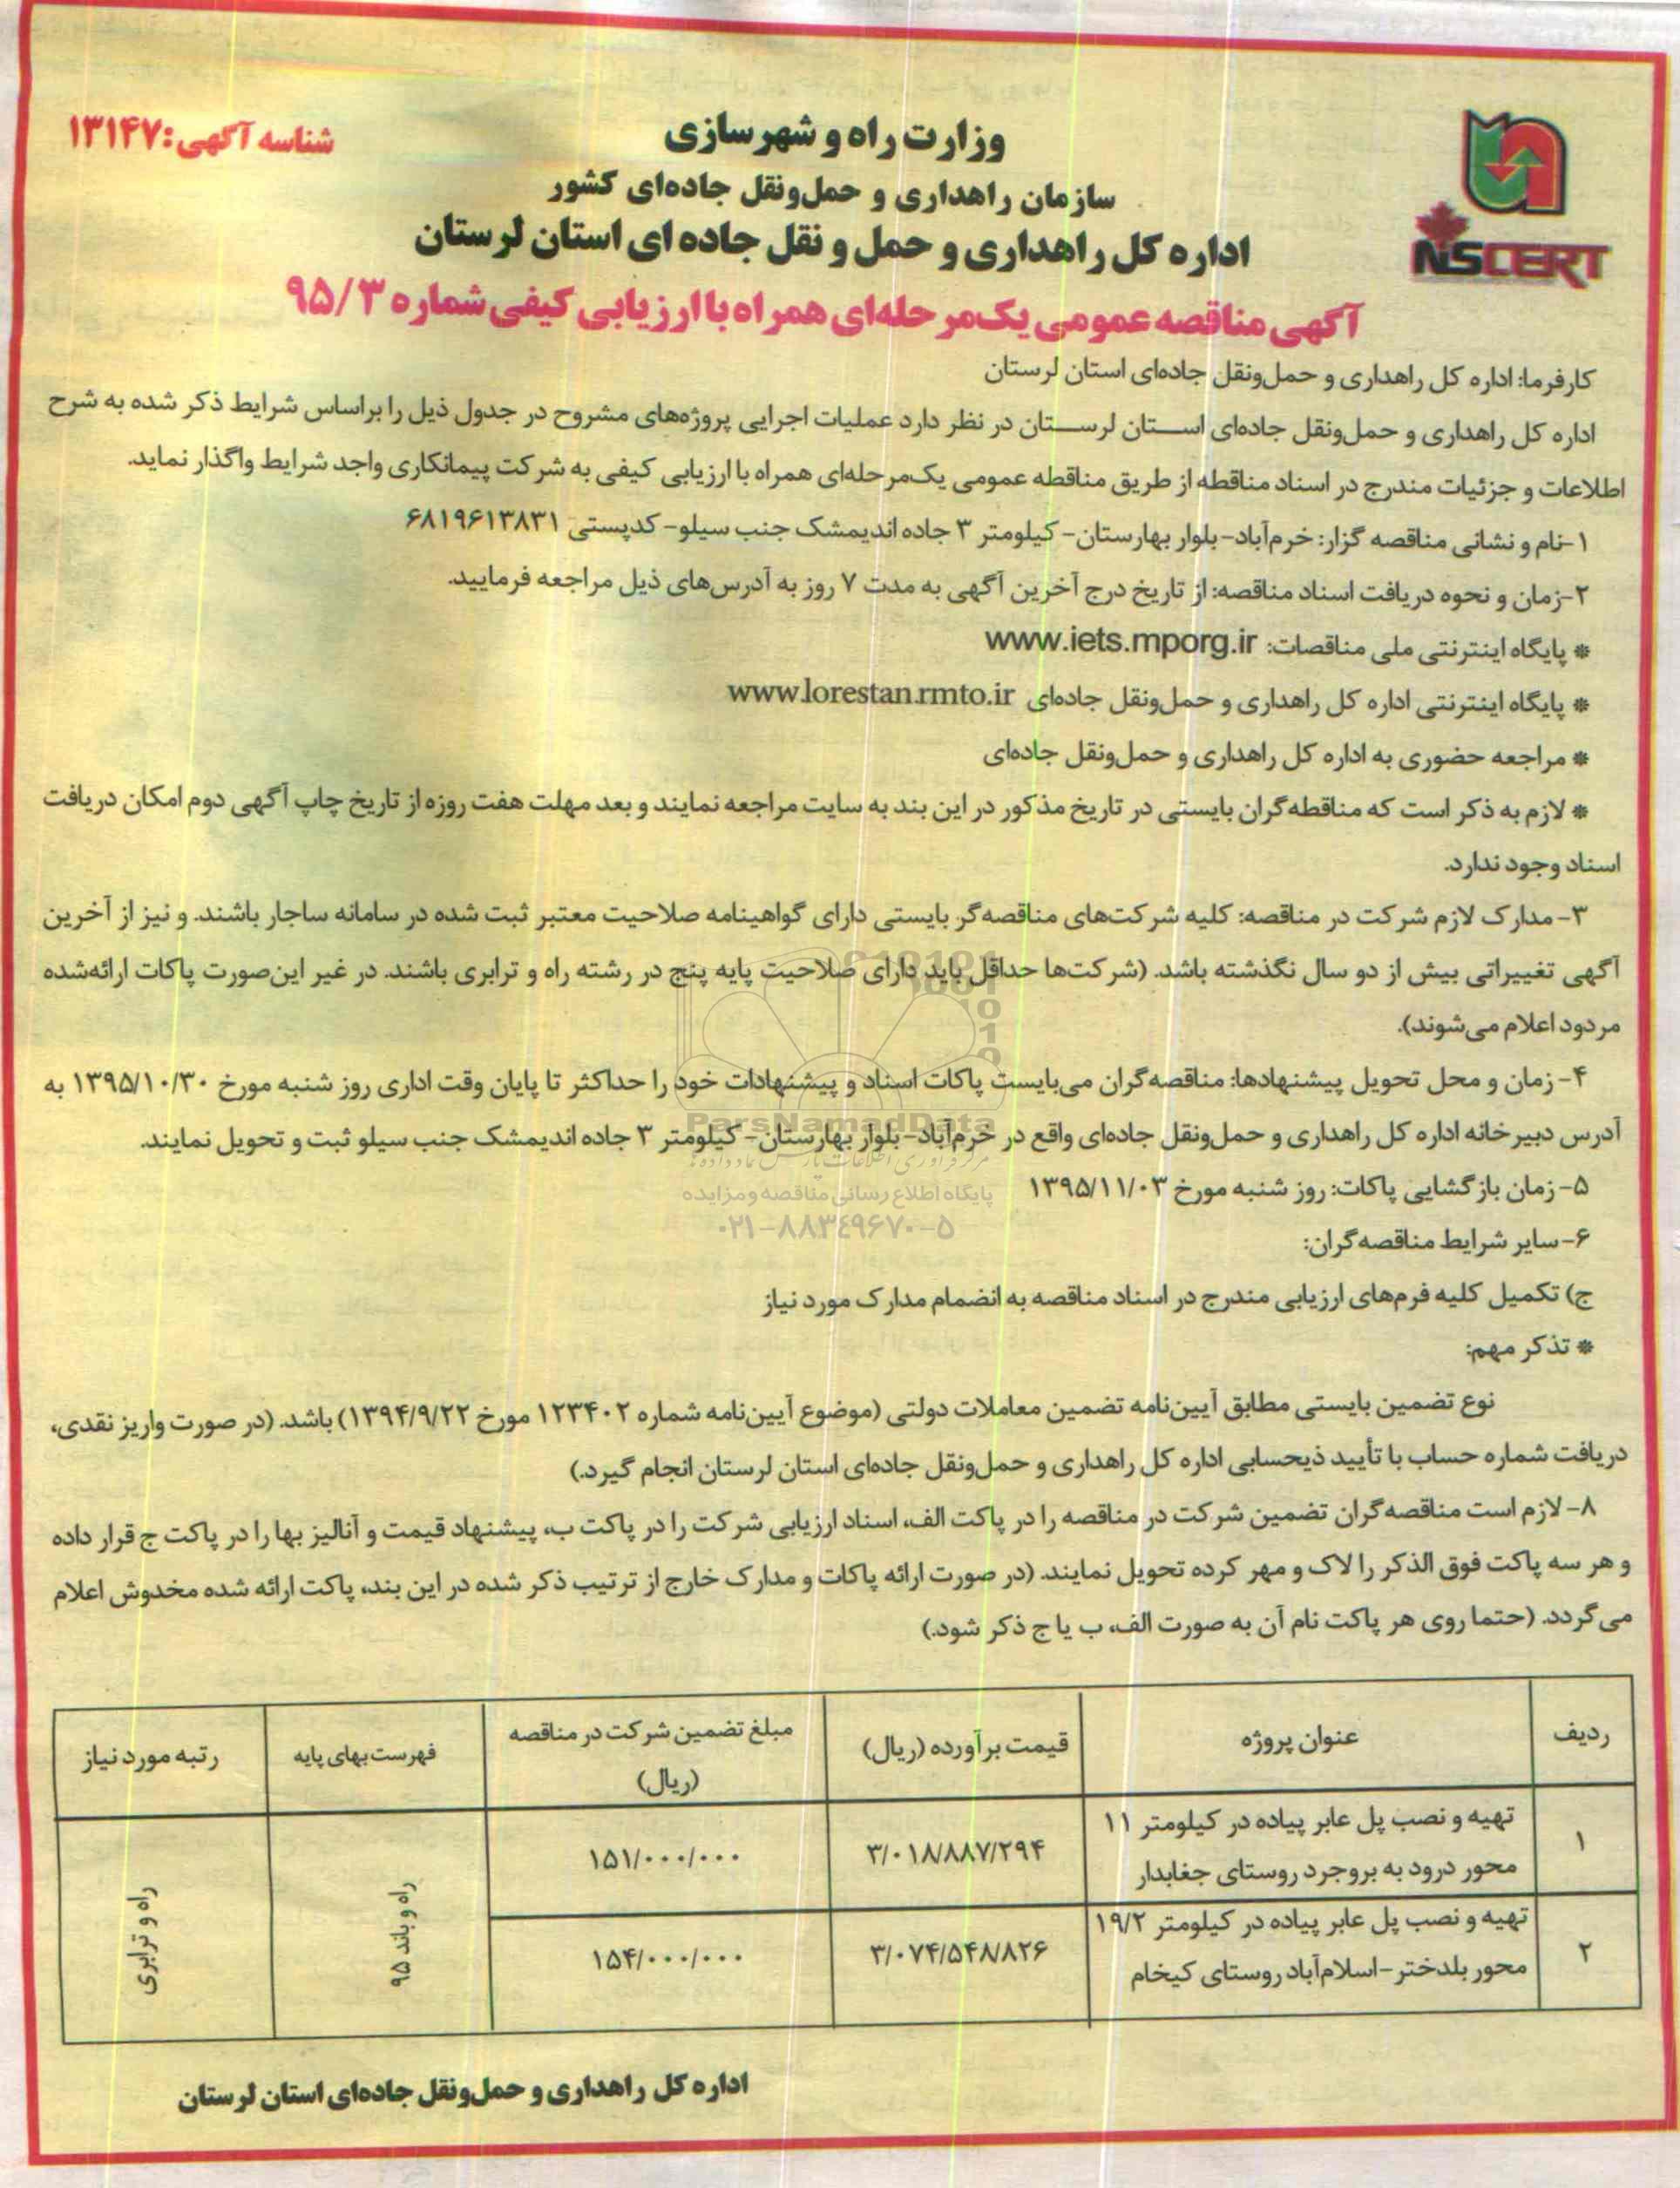 شناسه آگهی: ۱۳۱۴۷
وزارت راه و شهرسازی
سازمان راهداری و حمل‌ونقل جاده‌ای کشور
اداره کل راهداری و حمل و نقل جاده ای استان لرستان
NISCERT
آگهی مناقصه عمومی یک‌مرحله‌ای همراه با ارزیابی کیفی شماره ۹۵/۳
کارفرما: اداره کل راهداری و حمل‌ونقل جاده‌ای استان لرستان
اداره کل راهداری و حمل‌ونقل جاده‌ای استان لرستان در نظر دارد عملیات اجرایی پروژه‌های مشروح در جدول ذیل را براساس شرایط ذکر شده به شرح
اطلاعات و جزئیات مندرج در اسناد مناقطه از طریق مناقطه عمومی یک‌مرحله‌ای همراه با ارزیابی کیفی به شرکت پیمانکاری واجد شرایط واگذار نماید.
۱-نام و نشانی مناقصه گزار: خرم‌آباد-بلوار بهارستان- کیلومتر ۳ جاده اندیمشک جنب سیلو- کدپستی ۶۸۱۹۶۱۳۸۳۱
۲-زمان و نحوه دریافت اسناد مناقصه: از تاریخ درج آخرین آگهی به مدت ۷ روز به آدرس‌های ذیل مراجعه فرمایید.
* پایگاه اینترنتی ملی مناقصات: www.iets.mporg.ir
* پایگاه اینترنتی اداره کل راهداری و حمل‌ونقل جاده‌ای www.lorestan.rmto.ir
* مراجعه حضوری به اداره کل راهداری و حمل‌ونقل جاده‌ای
* لازم به ذکر است که مناقطه‌گران بایستی در تاریخ مذکور در این بند به سایت مراجعه نمایند و بعد مهلت هفت روزه از تاریخ چاپ آگهی دوم امکان دریافت
اسناد وجود ندارد.
۳- مدارک لازم شرکت در مناقصه: کلیه شرکت‌های مناقصه‌گر بایستی دارای گواهینامه صلاحیت معتبر ثبت شده در سامانه ساجار باشند. و نیز از آخرین
آگهی تغییراتی بیش از دو سال نگذشته باشد. (شرکت‌ها حداقل باید دارای صلاحیت پایه پنج در رشته راه و ترابری باشند. در غیر این‌صورت پاکات ارائه‌شده
مردود اعلام می‌شوند).
۴- زمان و محل تحویل پیشنهادها: مناقصه‌گران می‌بایست پاکات اسناد و پیشنهادات خود را حداکثر تا پایان وقت اداری روز شنبه مورخ ۱۳۹۵/۱۰/۳۰ به
ParsNamadData
آدرس دبیرخانه اداره کل راهداری و حمل‌ونقل جاده‌ای واقع در خرم‌آباد-بلوار بهارستان- کیلومتر ۳ جاده اندیمشک جنب سیلو ثبت و تحویل نمایند.
۵- زمان بازگشایی پاکات: روز شنبه مورخ ۱۳۹۵/۱۱/۰۳
پایگاه اطلاع رسانی مناقصه و مزایده
۰۲۱-۸۸۳۴۹۶۷۰-۵
۶-سایر شرایط مناقصه‌گران:
ج) تکمیل کلیه فرم‌های ارزیابی مندرج در اسناد مناقصه به انضمام مدارک مورد نیاز
* تذکر مهم:
نوع تضمین بایستی مطابق آیین‌نامه تضمین معاملات دولتی (موضوع آیین‌نامه شماره ۱۲۳۴۰۲ مورخ ۱۳۹۴/۹/۲۲) باشد. (در صورت واریز نقدی،
دریافت شماره حساب با تأیید ذیحسابی اداره کل راهداری و حمل‌ونقل جاده‌ای استان لرستان انجام گیرد.)
۸- لازم است مناقصه‌گران تضمین شرکت در مناقصه را در پاکت الف، اسناد ارزیابی شرکت را در پاکت ب، پیشنهاد قیمت و آنالیز بها را در پاکت ج قرار داده
و هر سه پاکت فوق الذکر را لاک و مهر کرده تحویل نمایند. (در صورت ارائه پاکات و مدارک خارج از ترتیب ذکر شده در این بند، پاکت ارائه شده مخدوش اعلام
می‌گردد. (حتما روی هر پاکت نام آن به صورت الف، ب یا ج ذکر شود.)
ردیف عنوان پروژه قیمت برآورده (ریال) مبلغ تضمین شرکت در مناقصه (ریال) فهرست‌بهای پایه رتبه مورد نیاز
۱ تهیه و نصب پل عابر پیاده در کیلومتر ۱۱
محور درود به بروجرد روستای جغابدار ۳/۰۱۸/۸۸۷/۲۹۴ ۱۵۱/۰۰۰/۰۰۰
راه و باند ۹۵ راه و ترابری
۲ تهیه و نصب پل عابر پیاده در کیلومتر ۱۹/۲
محور بلدختر-اسلام‌آباد روستای کیخام ۳/۰۷۴/۵۴۸/۸۲۶ ۱۵۴/۰۰۰/۰۰۰
اداره کل راهداری و حمل‌ونقل جاده‌ای استان لرستان